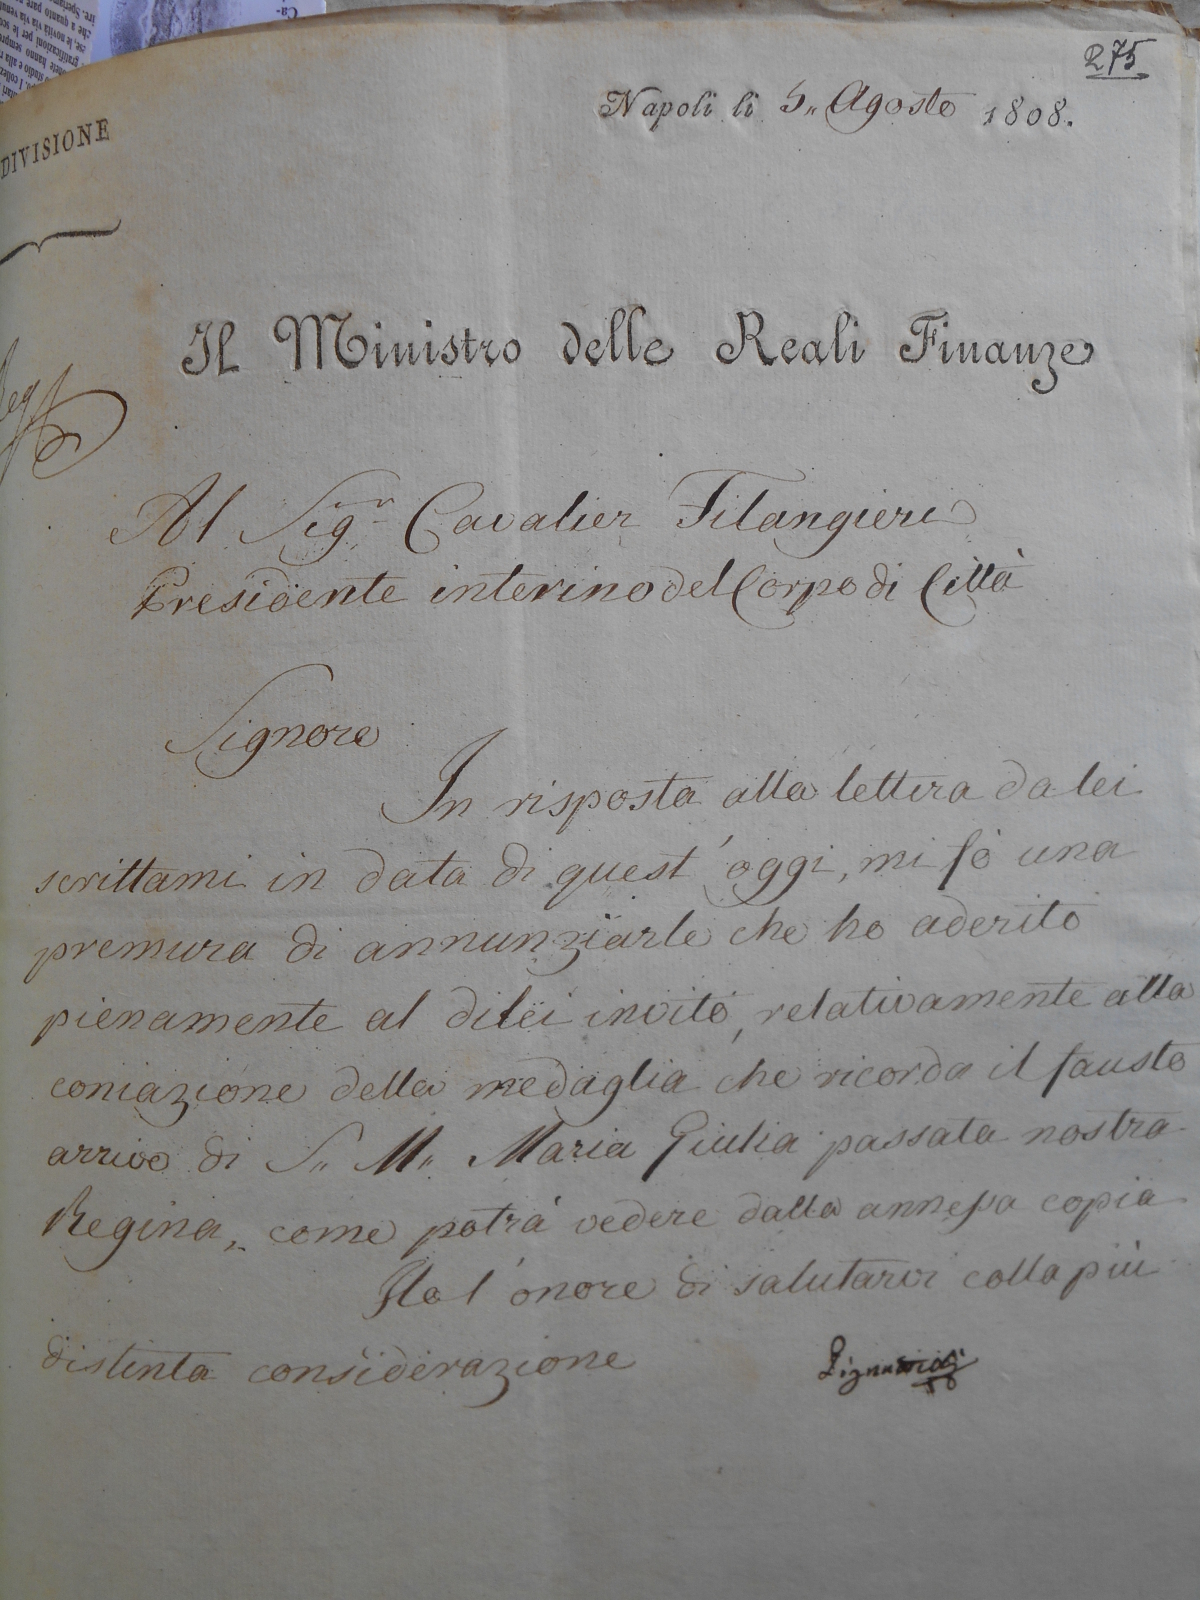 275
Napoli li 5,, Agosto 1808.
DIVISIONE
Il Ministro delle Reali Finanze
Al Sigr Cavalier Filangieri
Presidente interino del Corpo di Città
Signore
In risposta alla lettera da lei
scrittami in data di quest'oggi, mi fò una
premura di annunziarle che ho aderito
pienamente al dilei invito, relativamente alla
coniazione della medaglia che ricorda il fausto
arrivo di S,, M,, Maria Giulia passata nostra
Regina,, come potrà vedere dalla annessa copia
Ho l'onore di salutarvi colla più
distinta considerazione